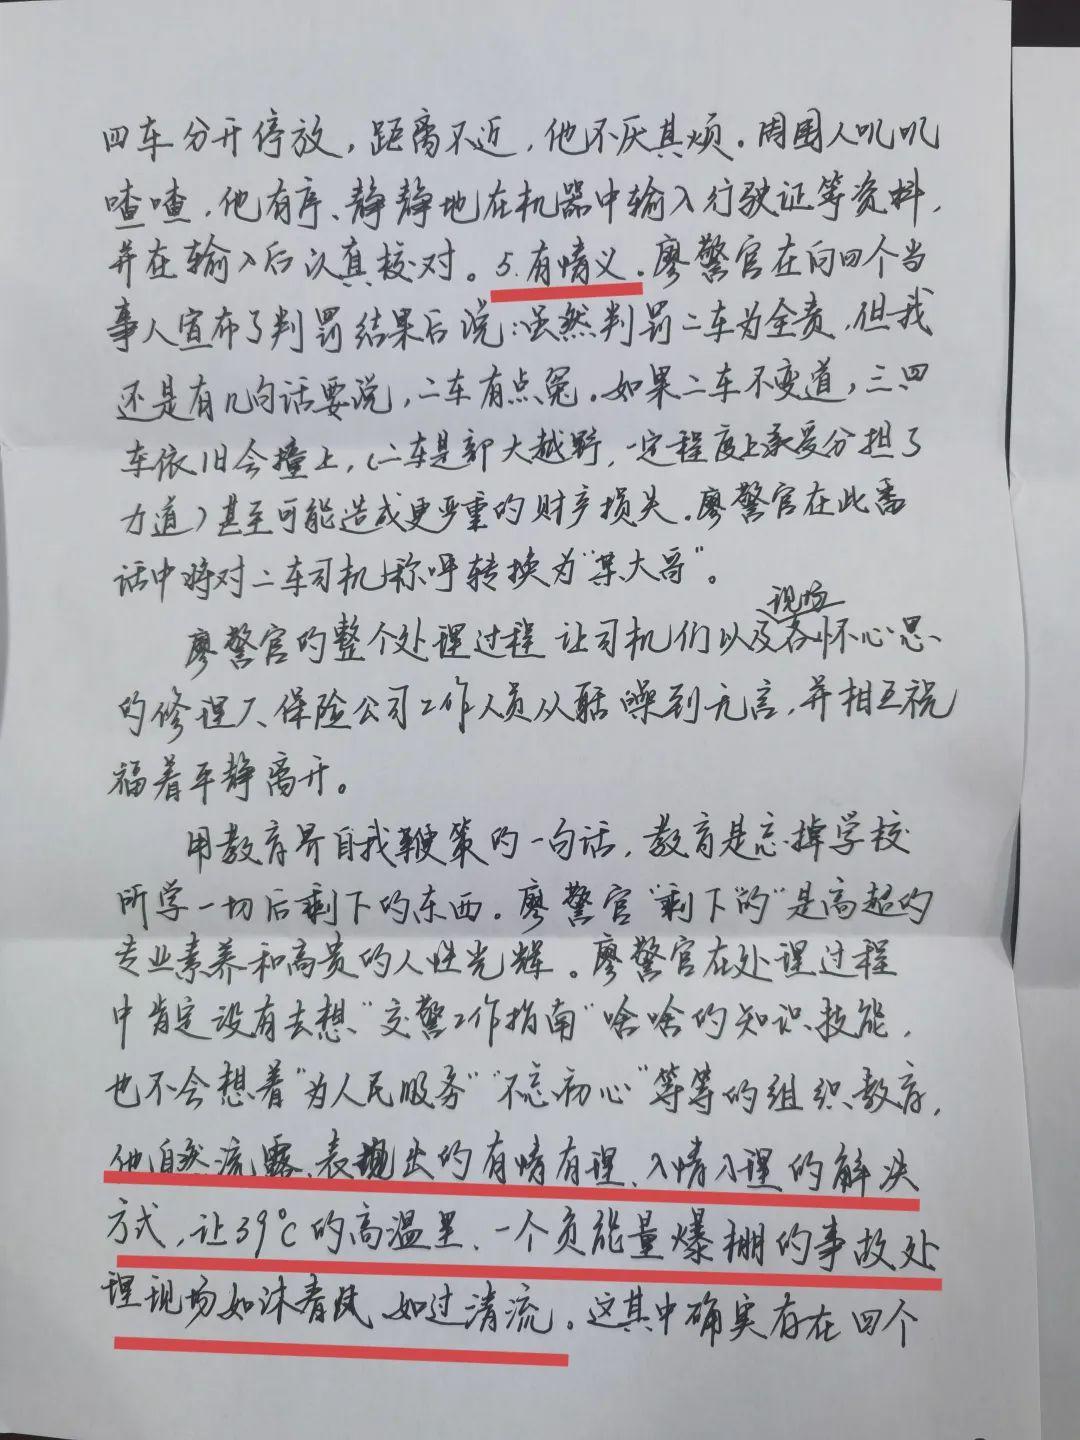 四车分开停放，距离不近，他不厌其烦。周围人叽叽
喳喳，他有序、静静地在机器中输入行驶证等资料，
并在输入后认真核对。5.有情义。廖警官在向四个当
事人宣布了判罚结果后说：虽然判罚二车为全责，但我
还是有几句话要说，二车有点冤。如果二车不变道，三四
车依旧会撞上，（二车是部大越野，一定程度上承受分担了
力道）甚至可能造成更严重的财产损失。廖警官在此番
话中将对二车司机称呼转换为“某大哥”。
廖警官的整个处理过程让司机们以及现场各怀心思
的修理厂、保险公司工作人员从聒噪到无言，并相互祝
福着平静离开。
用教育界自我鞭策的一句话，教育是忘掉学校
所学一切后剩下的东西。廖警官“剩下的”是高超的
专业素养和高贵的人性光辉。廖警官在处理过程
中肯定没有去想“交警工作指南”啥啥的知识技能，
也不会想着“为人民服务”“不忘初心”等等的组织教育，
他自然流露、表现出的有情有理、入情入理的解决
方式，让39℃的高温里、一个负能量爆棚的事故处
理现场如沐春风，如过清流。这其中确实存在四个